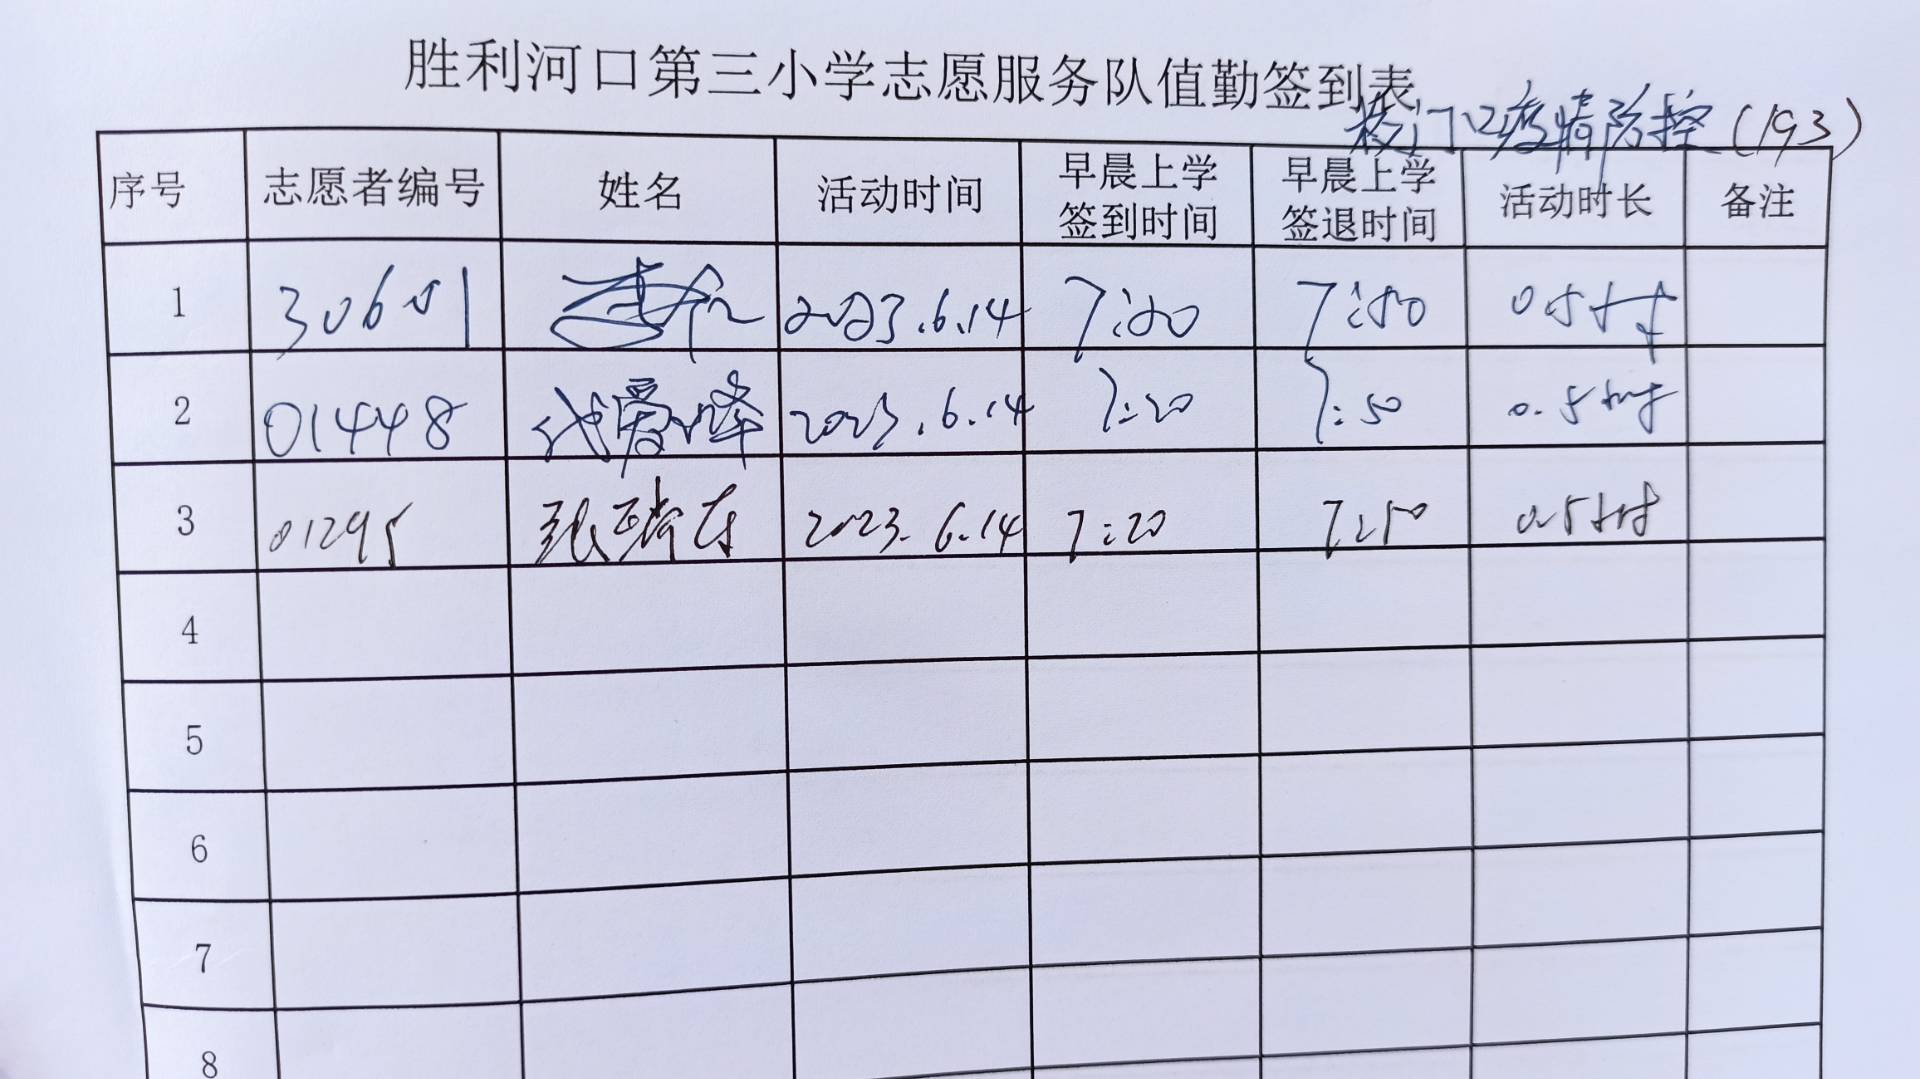 胜利河口第三小学志愿服务队值勤签到表
校门口疫情防控(193)
序号 志愿者编号 姓名 活动时间 早晨上学签到时间 早晨上学签退时间 活动时长 备注
1 2023.6.14 7:20 7:50 0.5小时
2 01448 2023.6.14 7:20 7:50 0.5小时
3 01295 张瑞存 2023.6.14 7:20 7:50 0.5小时
4
5
6
7
8